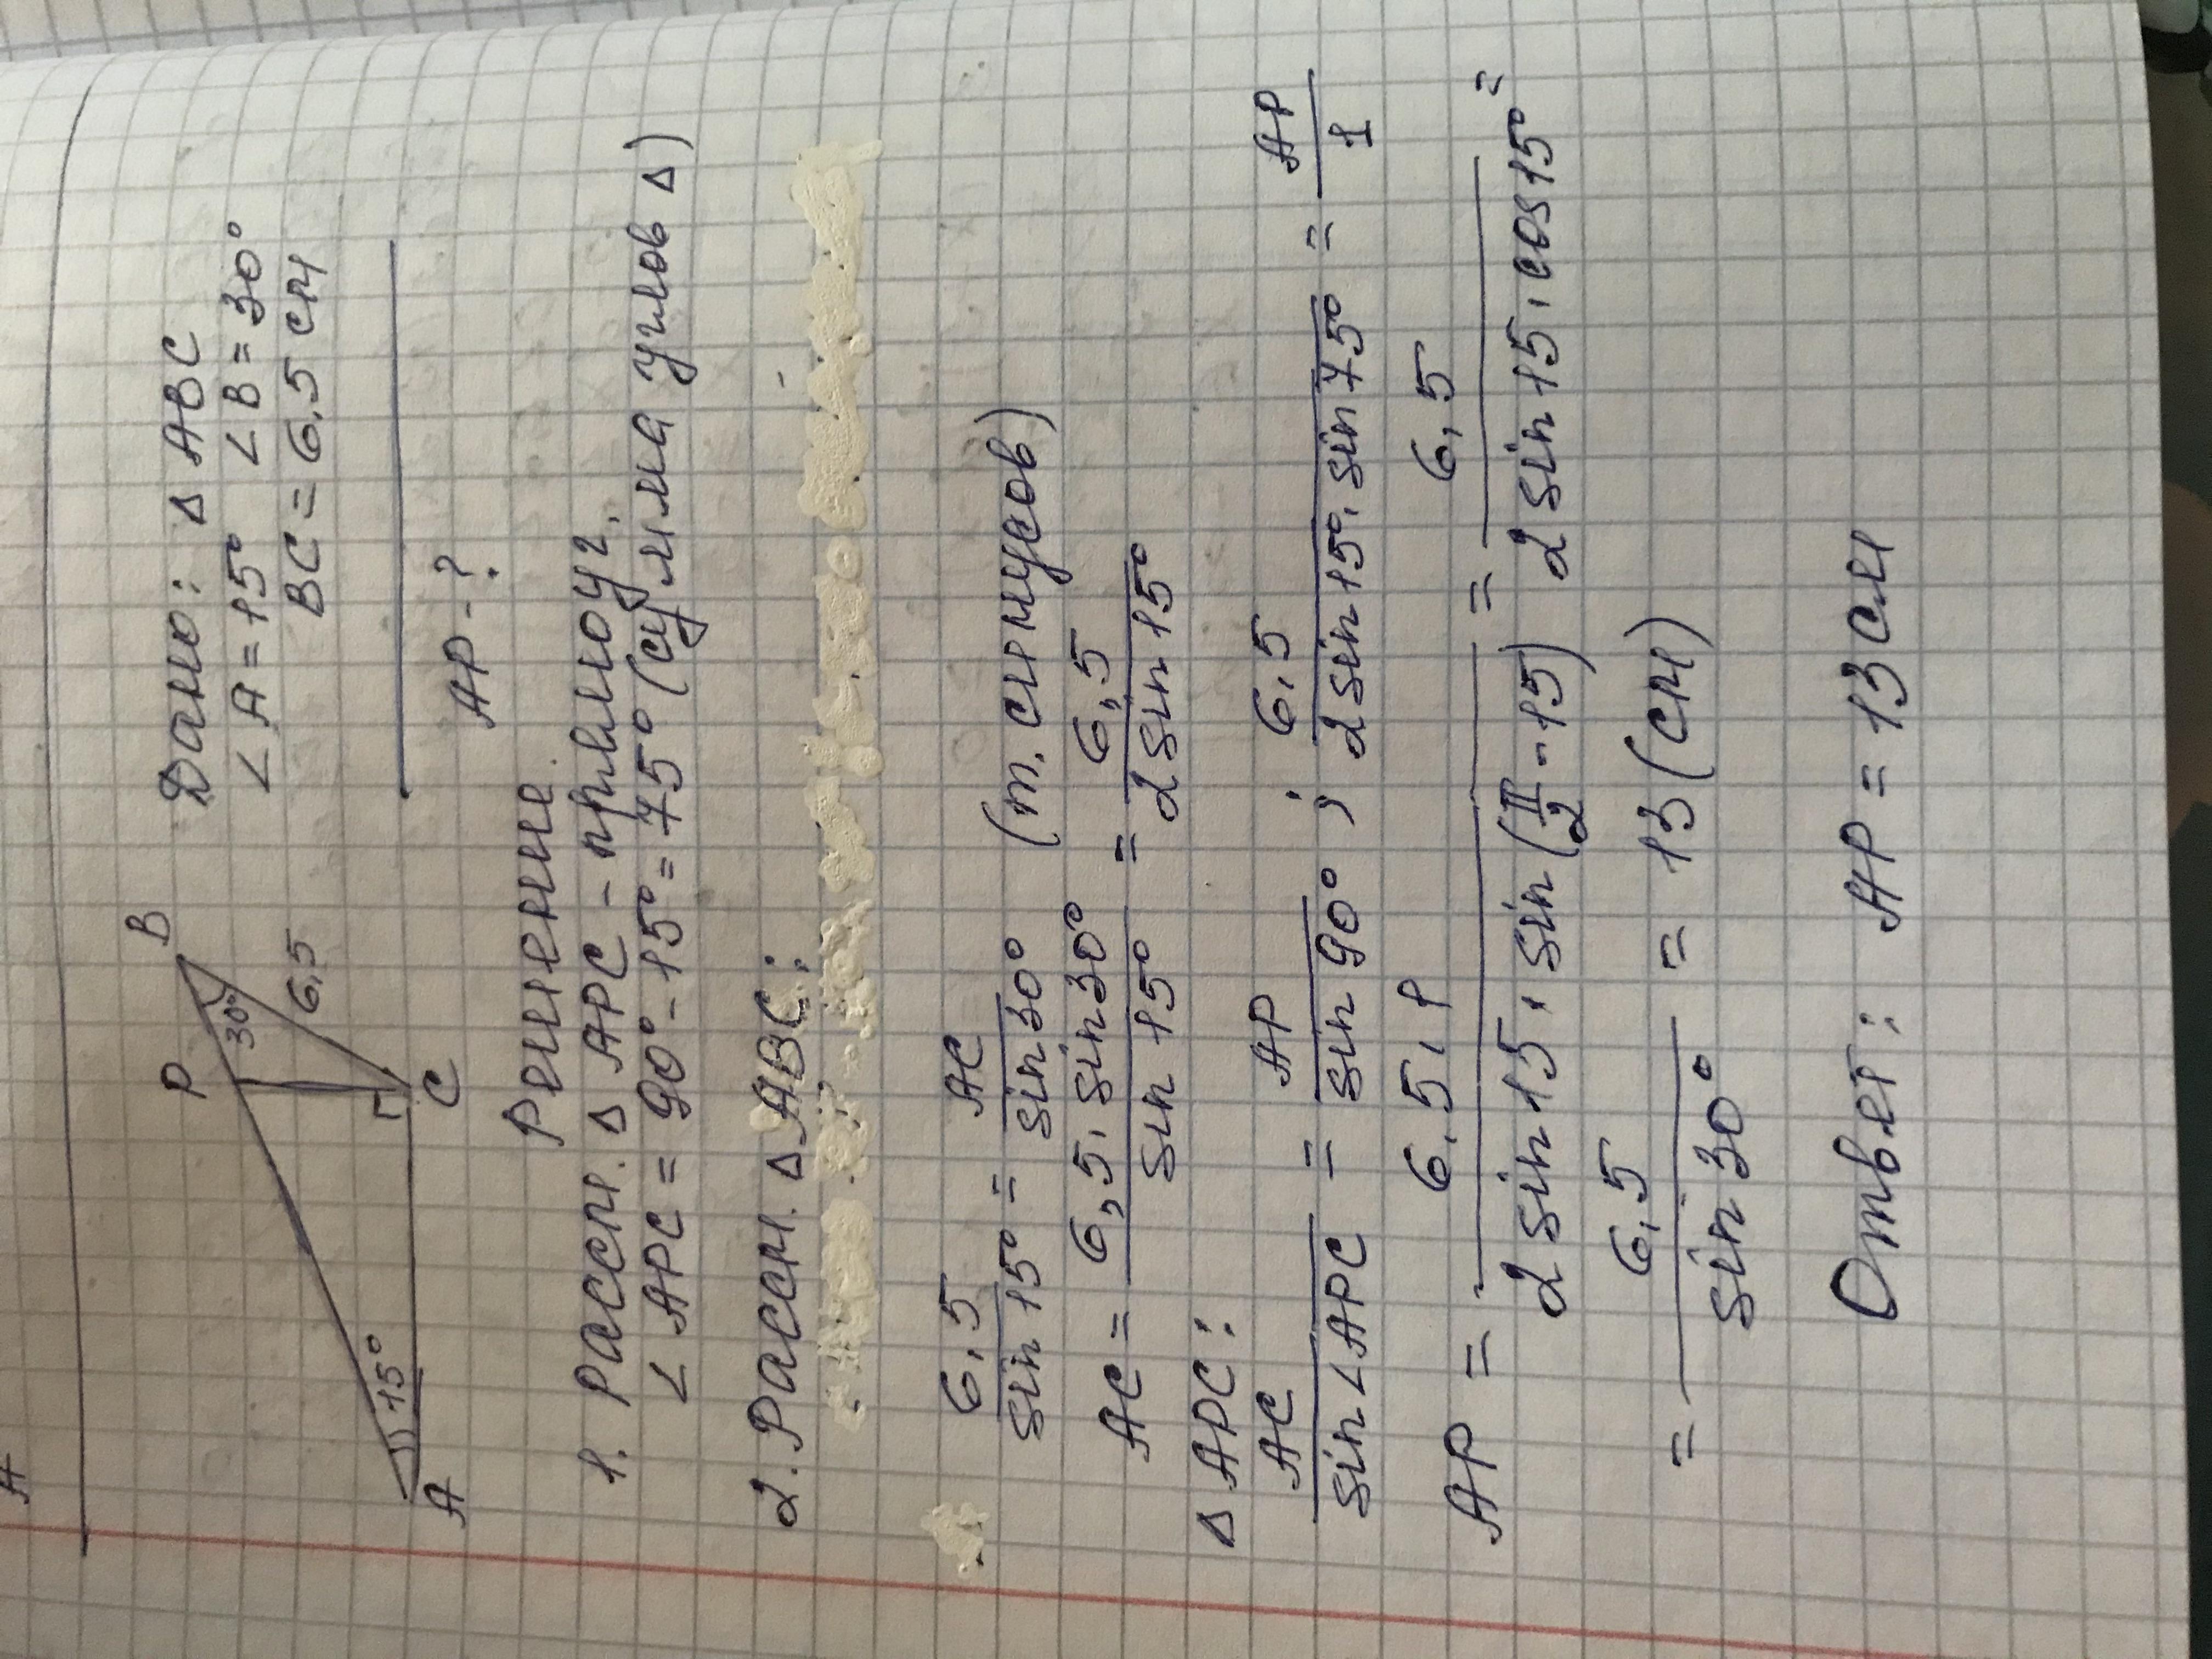 A
Дано: Δ ABC
∠A = 15° ∠B = 30°
BC = 6,5 см
AP - ?
B
P
30°
6,5
15°
A
C
Решение
1. Рассм. Δ APC - прямоуг.
∠ APC = 90° - 15° = 75° (сумма углов Δ)
2. Рассм. Δ ABC:
6,5 / sin 15° = AC / sin 30° (т. синусов)
AC = 6,5 · sin 30° / sin 15° = 6,5 / 2 sin 15°
Δ APC:
AC / sin ∠APC = AP / sin 90° ; 6,5 / 2 sin 15° · sin 75° = AP / 1
AP = 6,5 · 1 / 2 sin 15 · sin (π/2 - 15) = 6,5 / 2 sin 15 · cos 15° =
= 6,5 / sin 30° = 13 (см)
Ответ: AP = 13 см